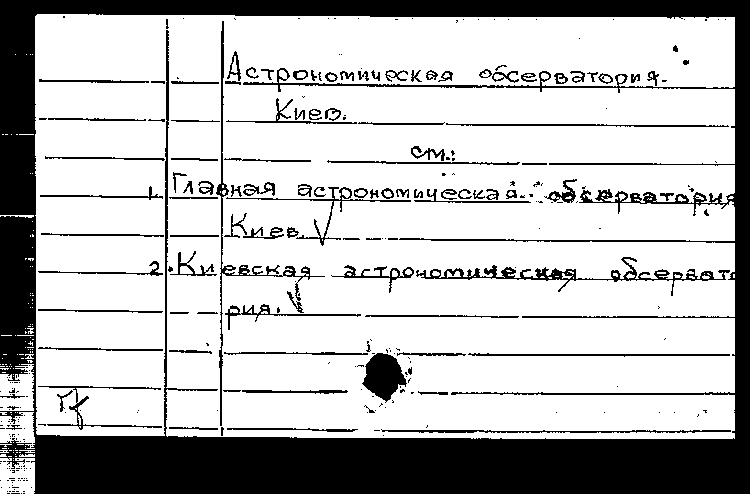 Астрономическая обсерватория.
Киев.
см.:
1. Главная астрономическая обсерватория
Киев. √
2. Киевская астрономическая обсервато
рия. √